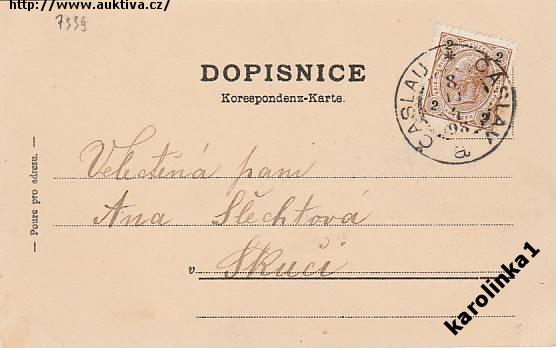 http://www.auktiva.cz/
7339
DOPISNICE
Korespondenz-Karte.
2 2
2 2
ČASLAU * ČÁSLAV
98
— Pouze pro adresu. —
Velectěná paní
Ana Šlechtová
v Skuči
karolinka1